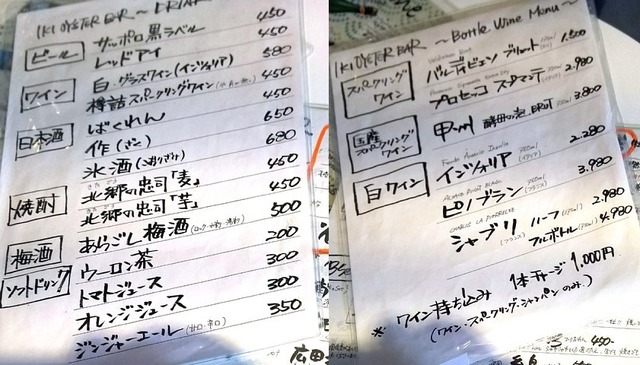 IKI OYSTER BAR ~ DRINK
ビール
サッポロ黒ラベル 450
レッドアイ 450
ワイン
白・グラスワイン(インヅォリア) 580
樽詰スパークリングワイン 450
日本酒
ばくれん 450
作(ざく) 650
氷酒 680
焼酎
北郷の忠司「麦」 450
北郷の忠司「芋」 450
梅酒
あらごし梅酒 500
ソフトドリンク
ウーロン茶 200
トマトジュース 300
オレンジジュース 300
ジンジャーエール(甘口・辛口) 350
IKI OYSTER BAR ~ Bottle Wine Menu ~
スパークリングワイン
バルディビエソ ブリュット 1,500
プロセッコ スプマンテ 2,980
国産スパークリングワイン
甲州 酵母の泡 BRUT 3,800
白ワイン
インヅォリア 750ml (イタリア) 2,280
ピノブラン 750ml (フランス) 3,980
CHABLIS LA PIERRELEE
シャブリ (フランス) ハーフ 2,980
フルボトル (750ml) 4,980
※ ワイン持ち込み 1本チャージ 1,000円
(ワイン・スパークリング・シャンパンのみ。)
450-
広田